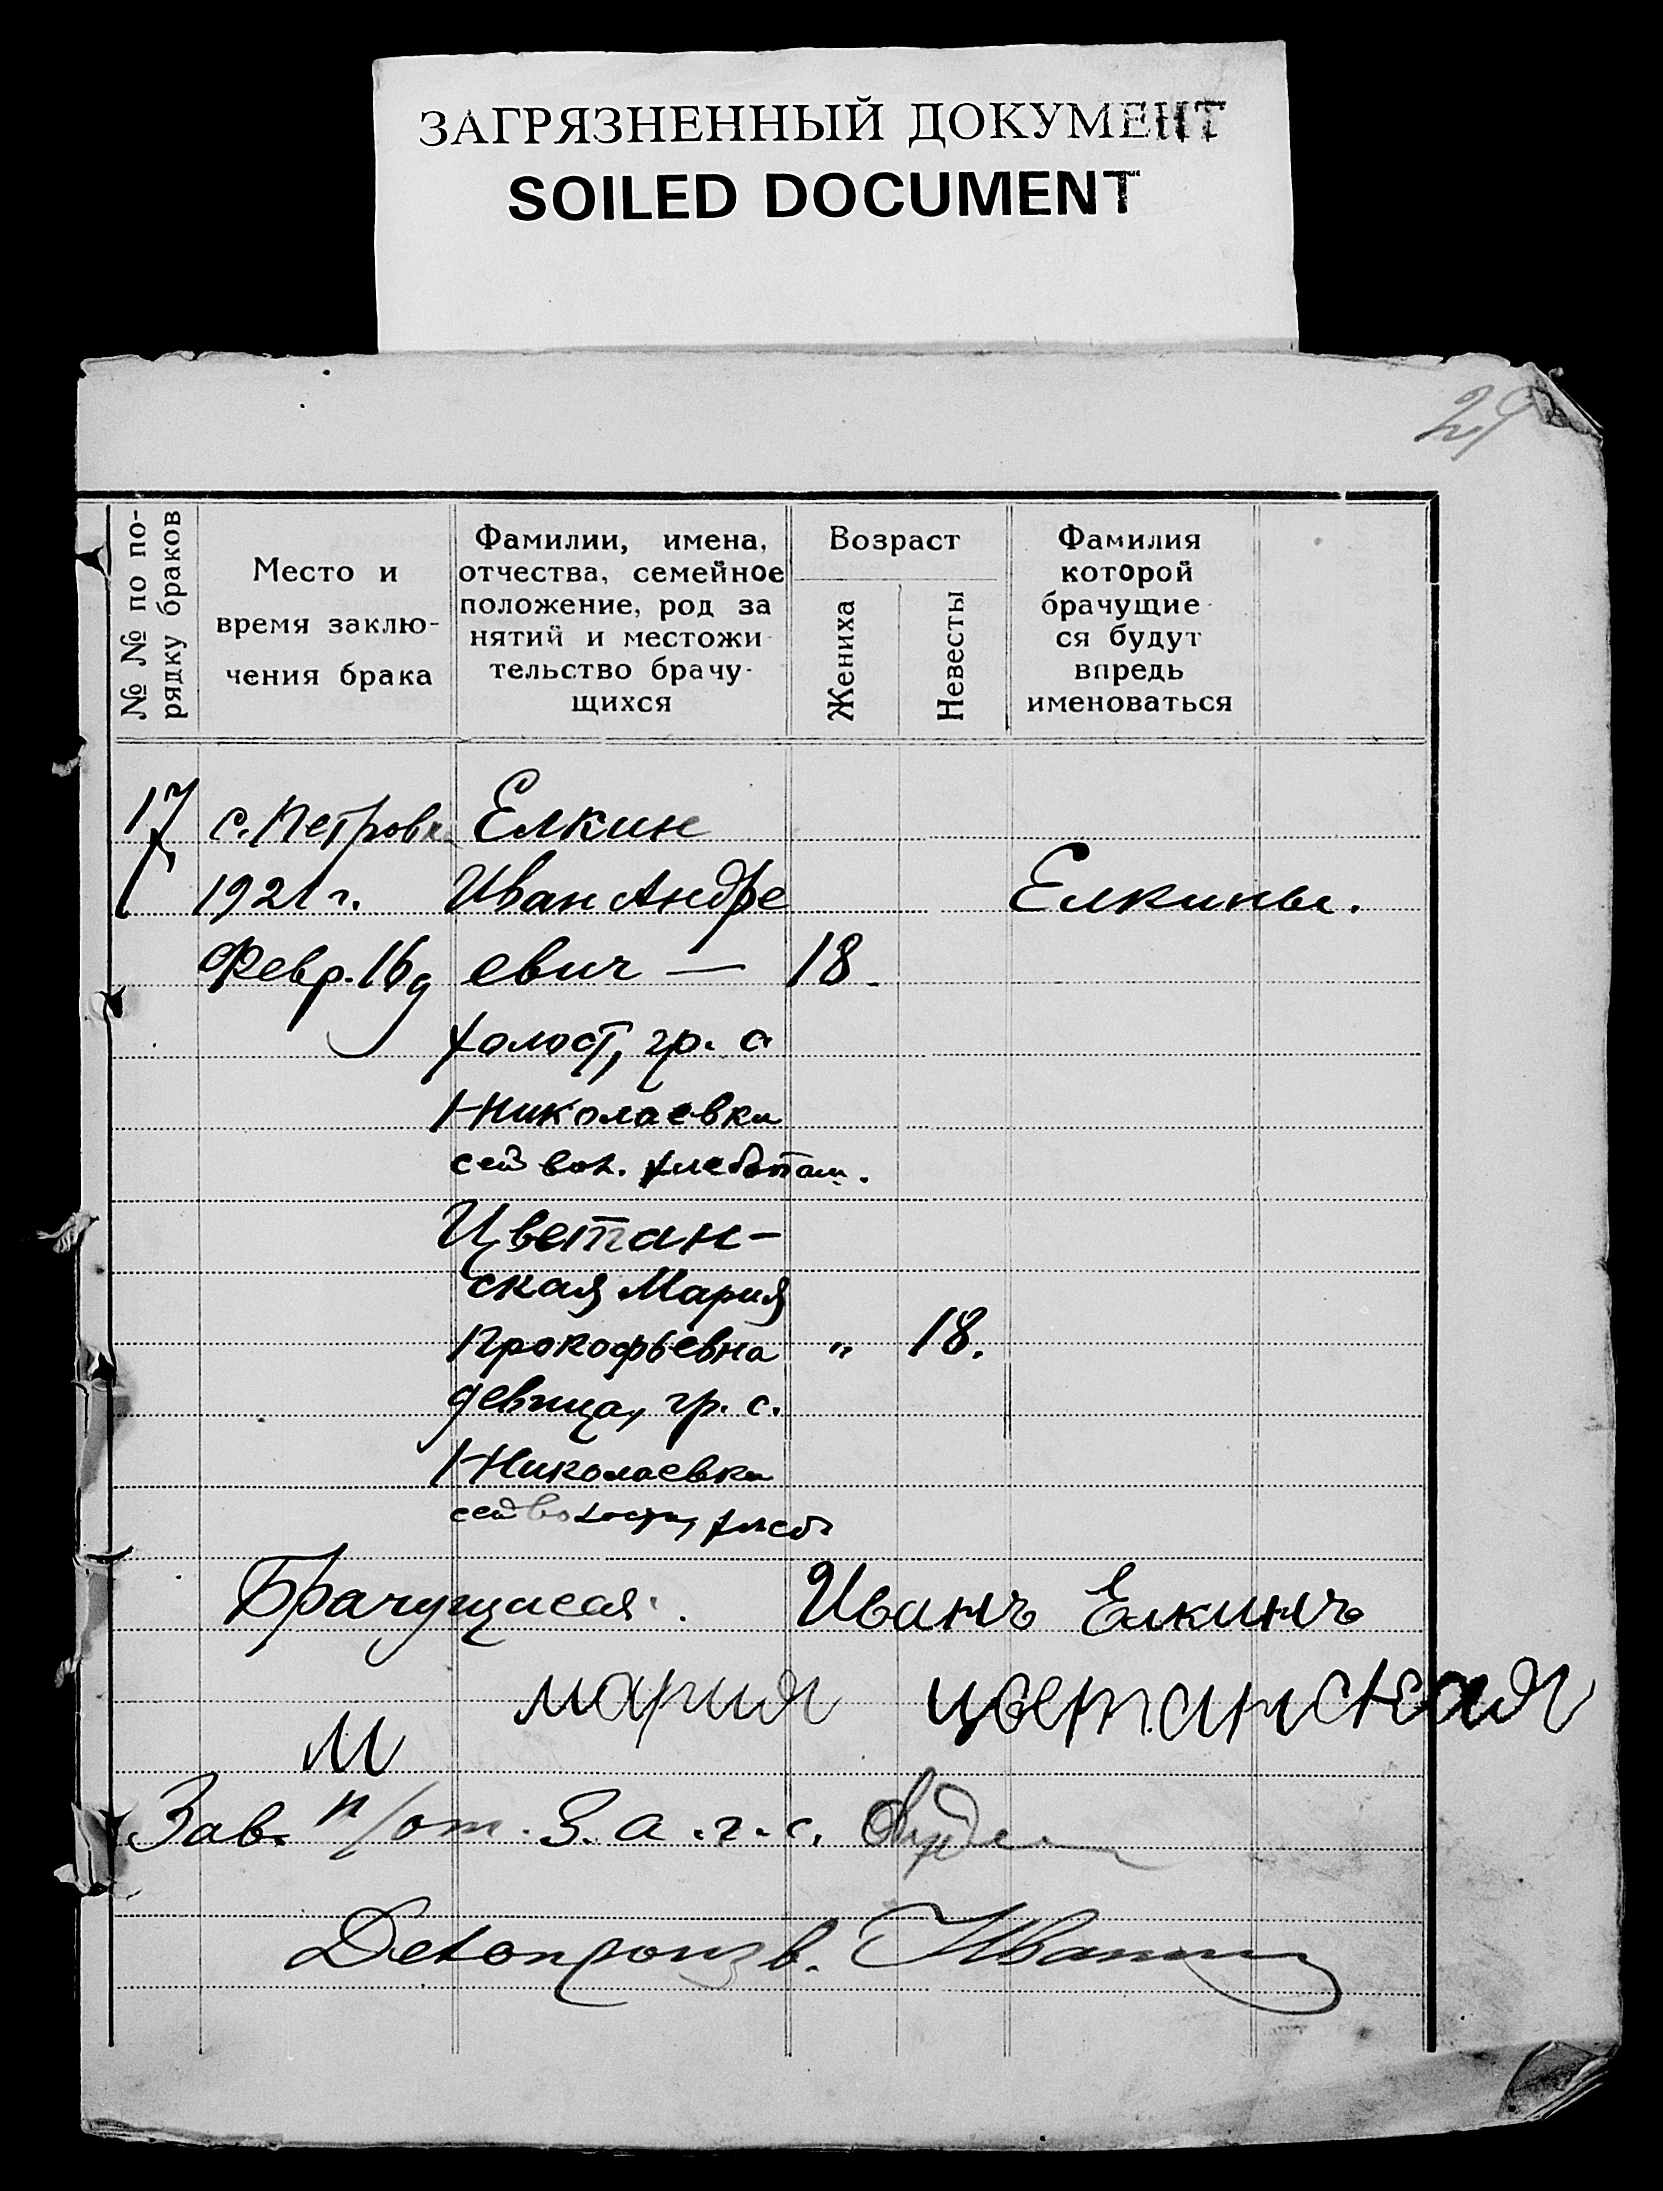 ЗАГРЯЗНЕННЫЙ ДОКУМЕНТ
SOILED DOCUMENT
29
№ № по по-
рядку браков
Место и
время заклю-
чения брака
Фамилии, имена,
отчества, семейное
положение, род за
нятий и местожи
тельство брачу-
щихся
Возраст
Жениха
Невесты
Фамилия
которой
брачущие-
ся будут
впредь
именоваться
17 с. Петровка Елкин
1921 г. Иван Андре Елкины.
Февр. 16 д евич — 18.
холост, гр. с
Николаевки
сей вол. хлебопаш.
Цветан-
ская Мария
Прокофьевна „ 18.
девица, гр. с.
Николаевки
сей волости, хлеб
Брачущиеся. Иванъ Елкинъ
мария цветанская
М
Зав. п/от. З.а.г.с.
Делопроизв.